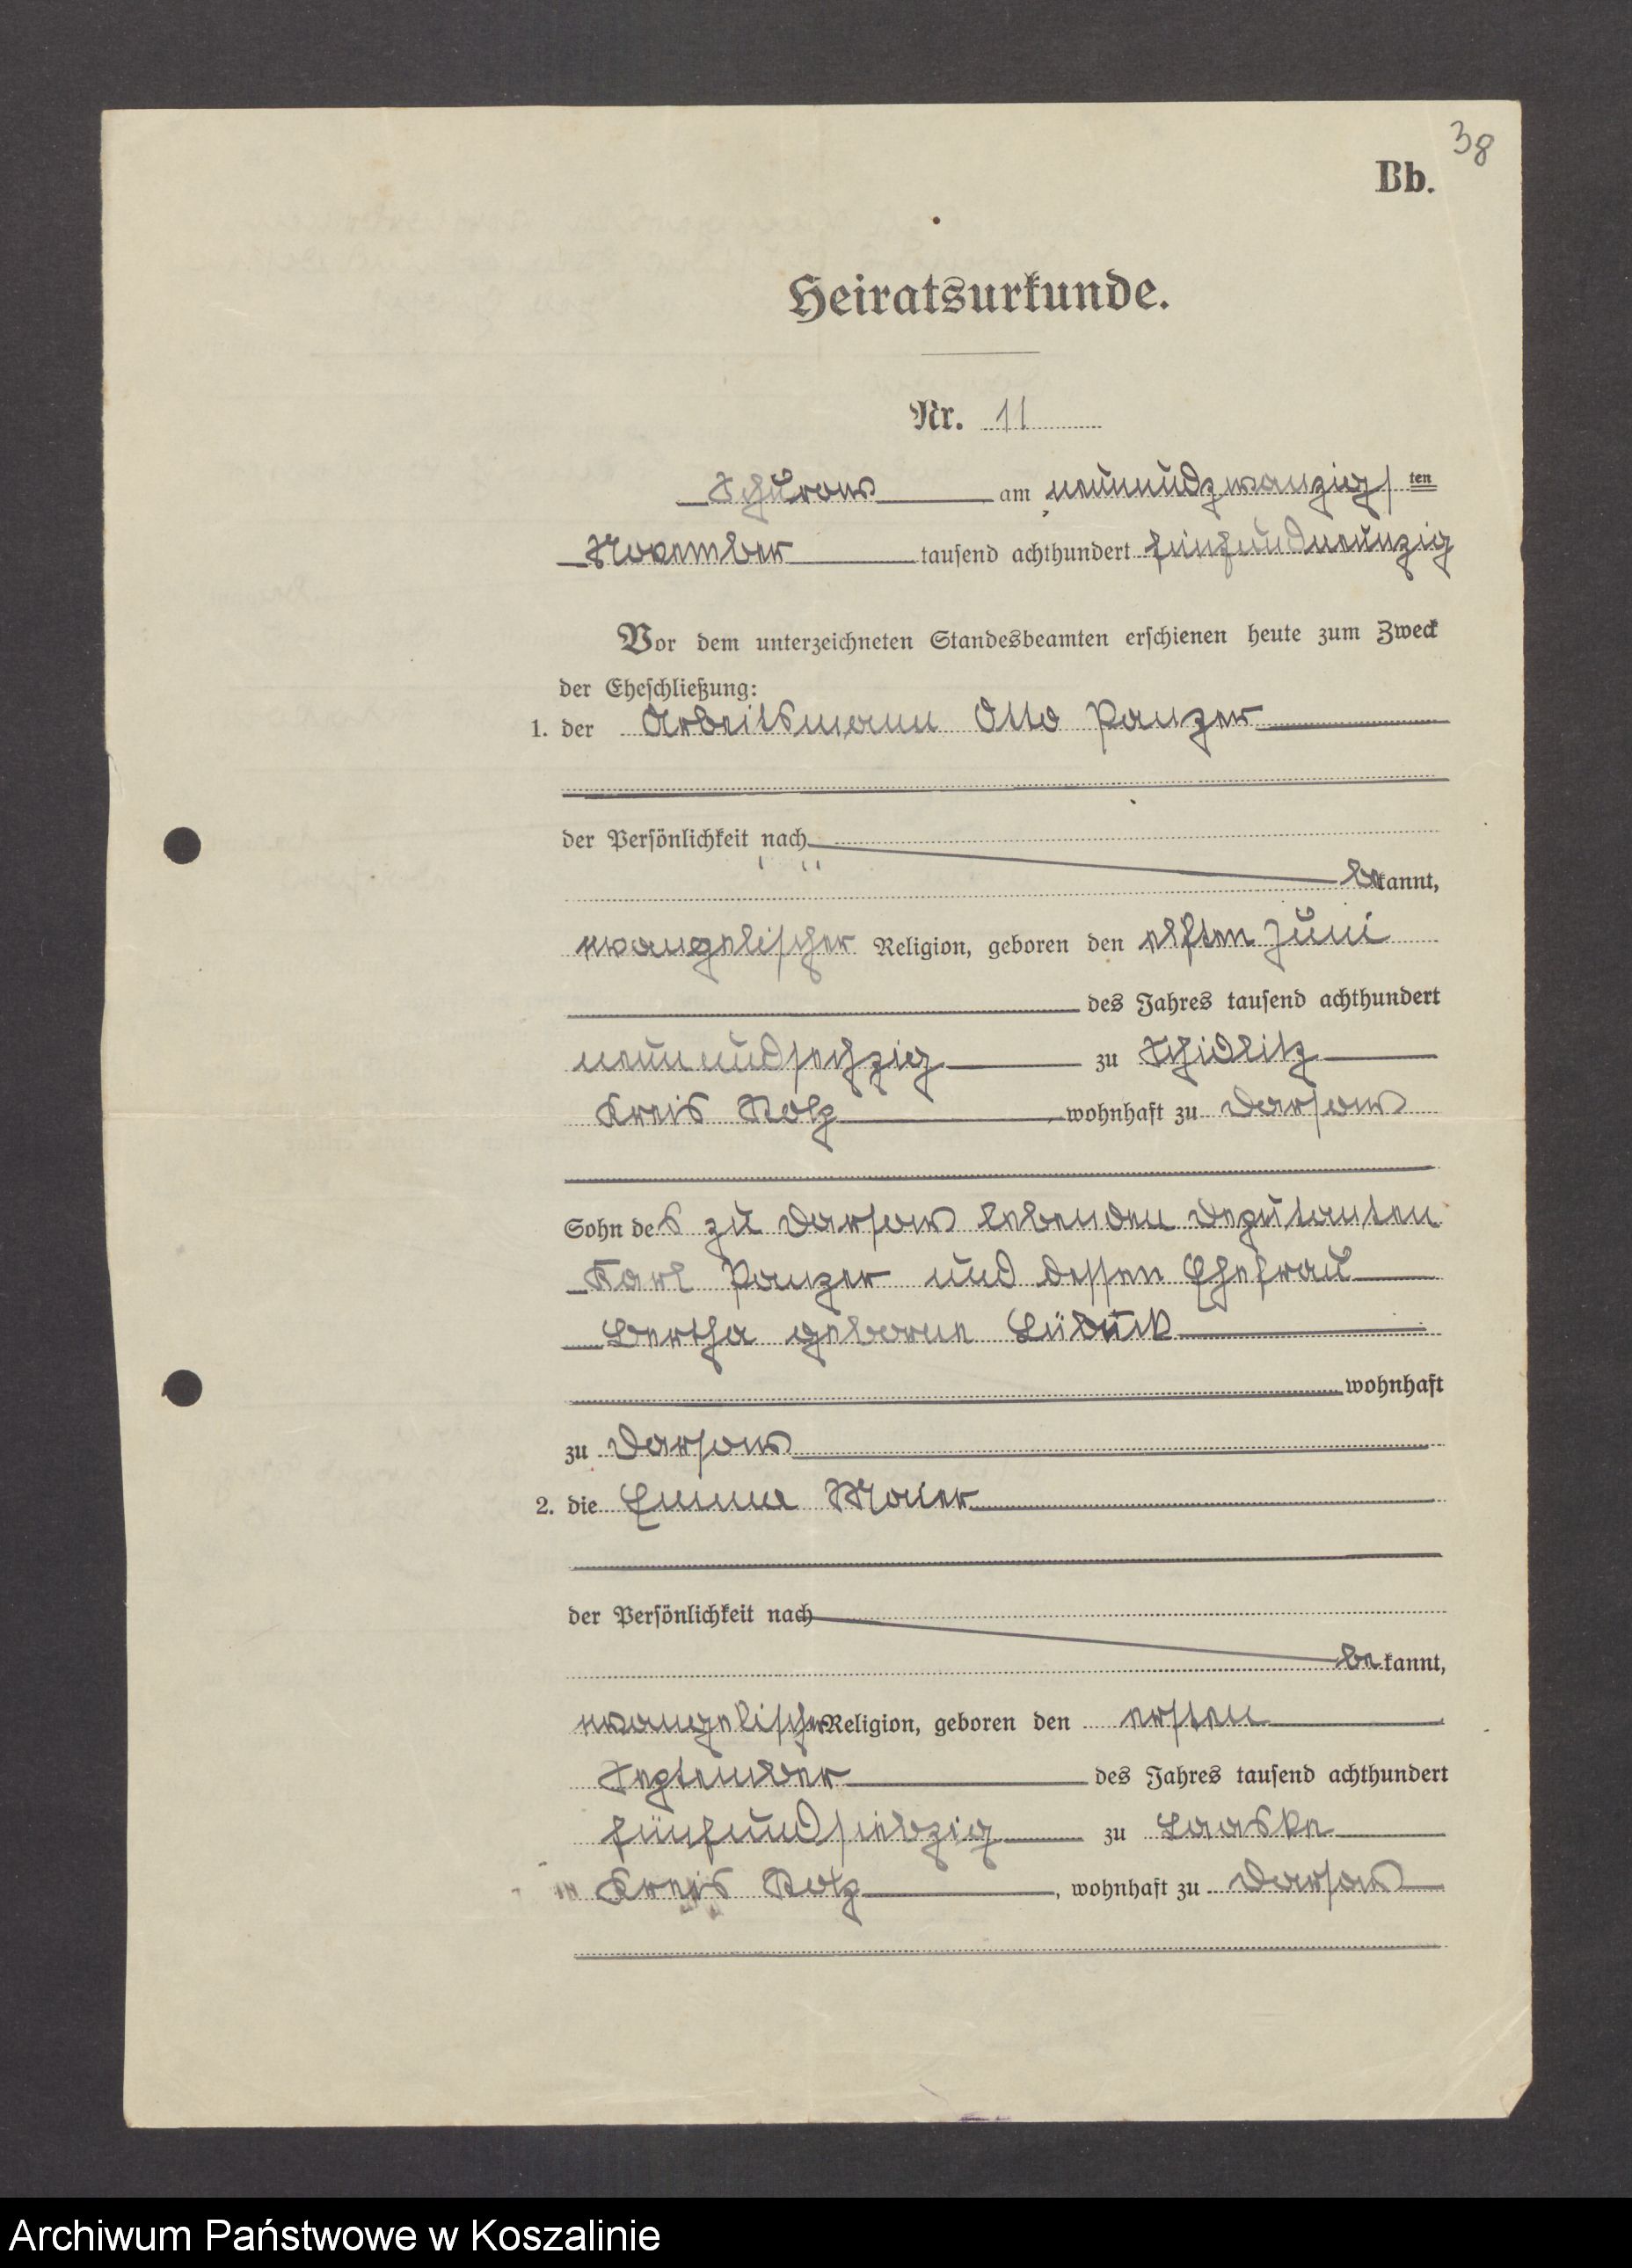 38
Bb.
Heiratsurkunde.
Nr. 11
Schurow am neunundzwanzigsten
November tausend achthundert fünfundneunzig
Vor dem unterzeichneten Standesbeamten erschienen heute zum Zweck
der Eheschließung:
1. der Arbeitsmann Otto Panzer
der Persönlichkeit nach
bekannt,
evangelischer Religion, geboren den elften Juni
des Jahres tausend achthundert
neunundsechzig zu Schidlitz
Kreis Stolp wohnhaft zu Darsow
Sohn des zu Darsow lebenden Deputanten
Karl Panzer und dessen Ehefrau
Bertha geborne
wohnhaft
zu Darsow
2. die Emma
der Persönlichkeit nach
bekannt,
evangelischer Religion, geboren den ersten
September des Jahres tausend achthundert
fünfundsiebzig zu
Kreis Stolp, wohnhaft zu Darsow
Archiwum Państwowe w Koszalinie